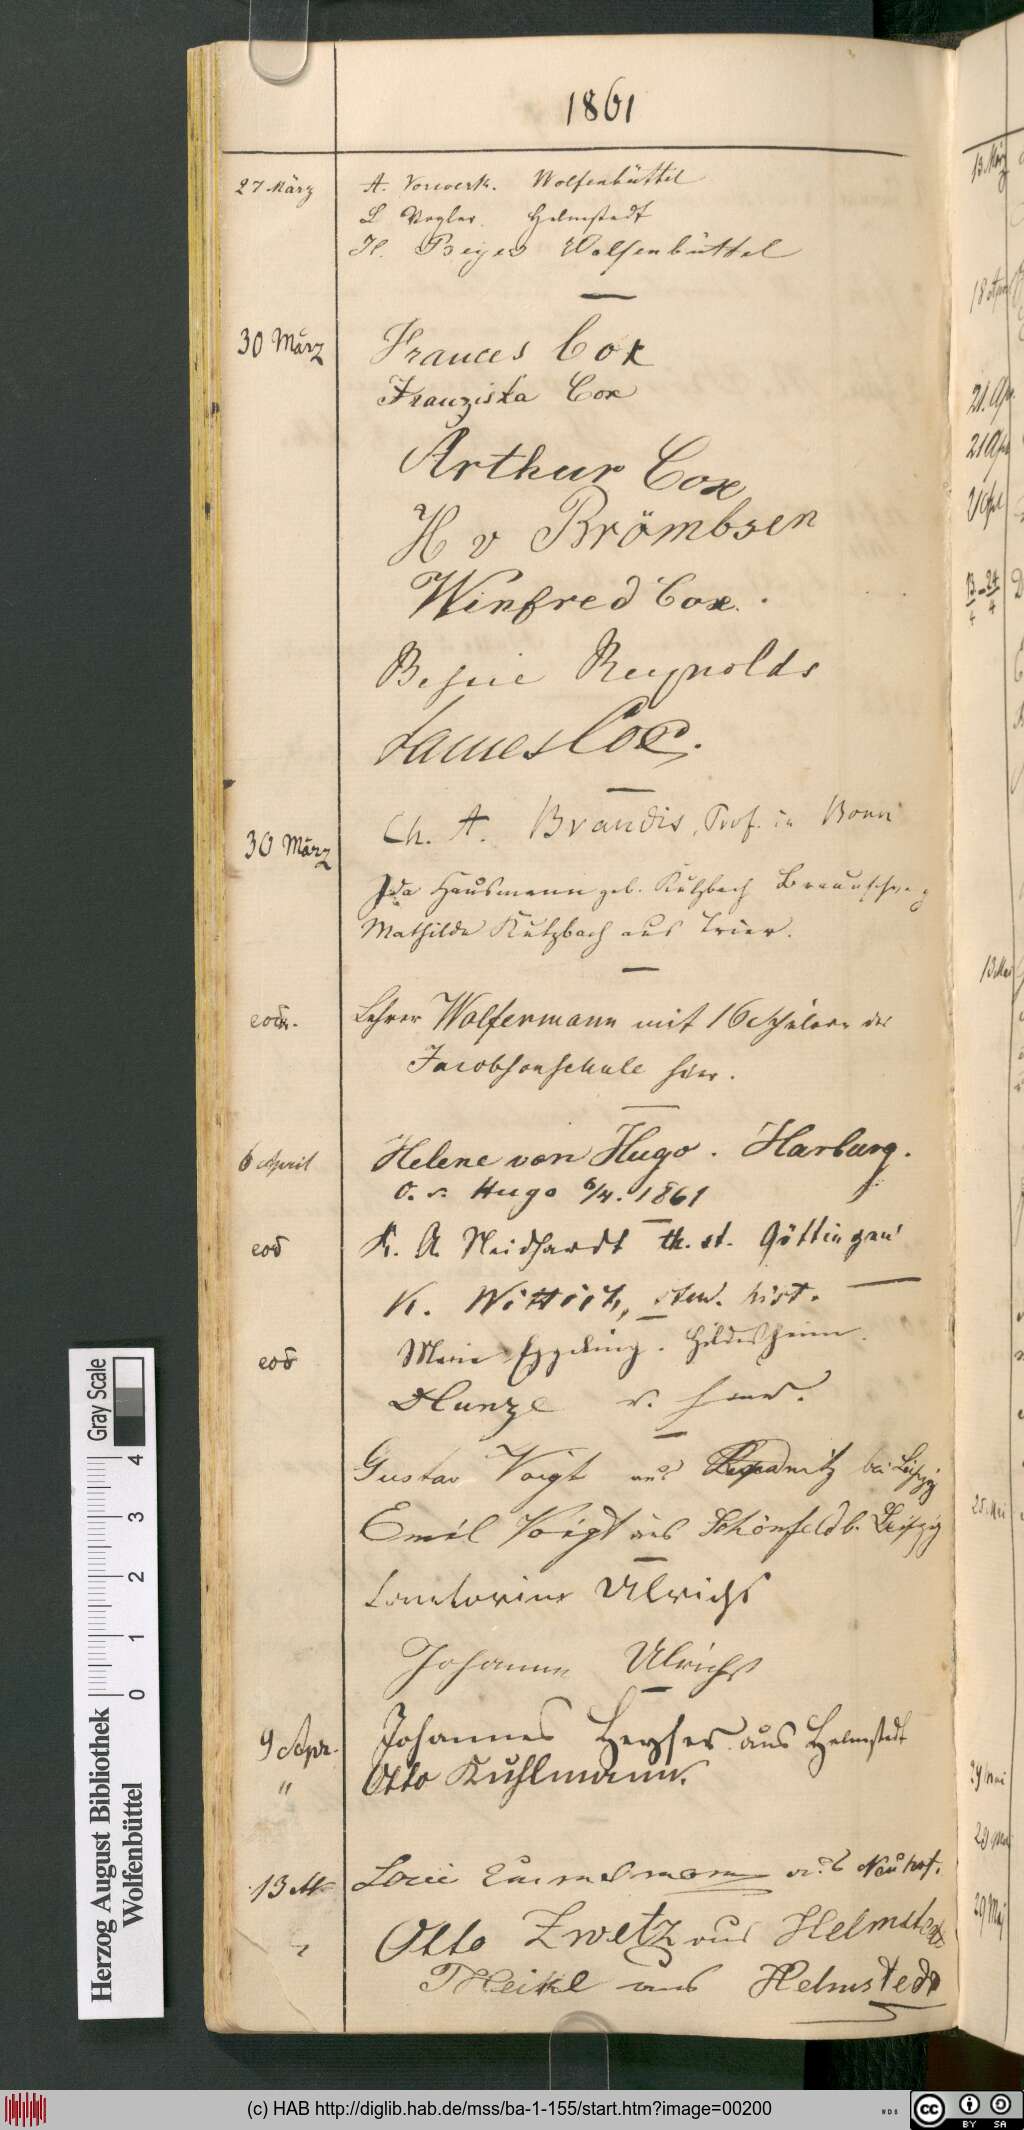 1861
27 März A. Vorwerk. Wolfenbüttel
L Vogler. Helmstedt
H. Beyer Wolfenbüttel
30 März Frances Cox
Franziska Cox
Arthur Cox
H v Brömbsen
Winfred Cox.
Bessie Reynolds
James Cox.
30 März Ch. A. Brandis, Prof. in Bonn
Ida Hausmann geb. Kutzbach Braunschweig
Mathilde Kutzbach aus Trier.
eod. Lehrer Wolfermann mit 16 Schülern der
Jacobsonschule hier.
6 April Helene von Hugo. Harburg.
O. v. Hugo 6/4. 1861
eod K. A. Neidhardt th. st. Göttingen
K. Wittich, stud. hist.
eod Marie Eggeling. Hildesheim.
H Kunze v. hier.
Gustav Voigt aus bei Leipzig
Emil Voigt aus Schönfeld b. Leipzig
Ulrichs
Johanne Ulrichs
9 Apr. Johannes Heyser aus Helmstedt
" Otto Kuhlmann.
13 aus Neuhof.
Otto Zwetz aus Helmstedt
aus Helmstedt
13. März
18 Apr
21. Apr.
21 Apr
13/4 - 24/4
13 Mai
25. Mai
29 Mai
29 Mai
29 Mai
Gray Scale
4
3
2
1
0
Herzog August Bibliothek
Wolfenbüttel
(c) HAB http://diglib.hab.de/mss/ba-1-155/start.htm?image=00200
WDB
cc BY SA